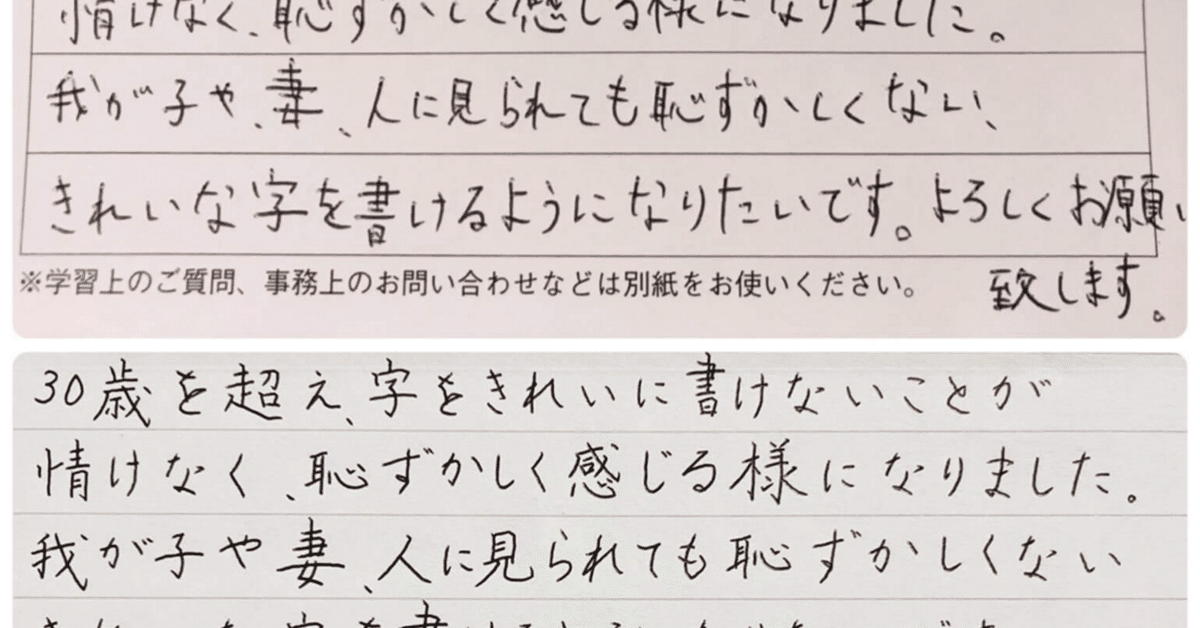 情けなく、恥ずかしく感じる様になりました。
我が子や、妻、人に見られても恥ずかしくない、
きれいな字を書けるようになりたいです。よろしくお願い
致します。
※学習上のご質問、事務上のお問い合わせなどは別紙をお使いください。
30歳を超え、字をきれいに書けないことが
情けなく、恥ずかしく感じる様になりました。
我が子や妻、人に見られても恥ずかしくない